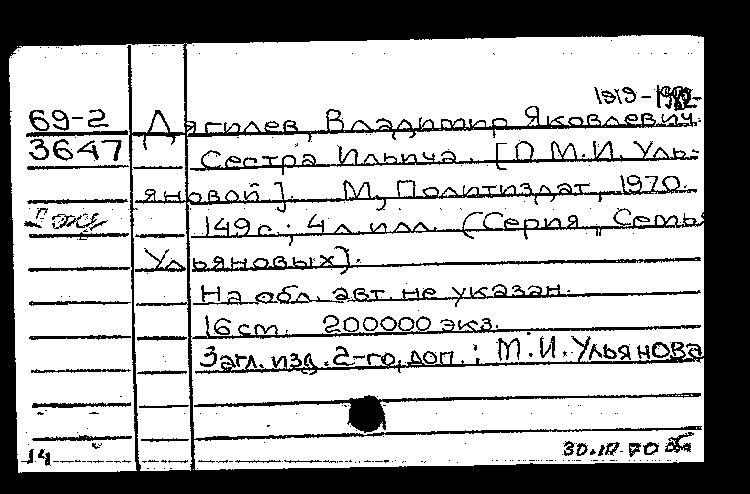 1919-1982
69-2 Дягилев, Владимир Яковлевич.
3647 Сестра Ильича. [О М.И. Уль-
яновой]. М., Политиздат, 1970.
149 с.; 4 л. илл. (Серия "Семья
Ульяновых).
На обл. авт. не указан.
16 cm. 200000 экз.
Загл. изд. 2-го, доп.: М.И. Ульянова
14 30.IV.70